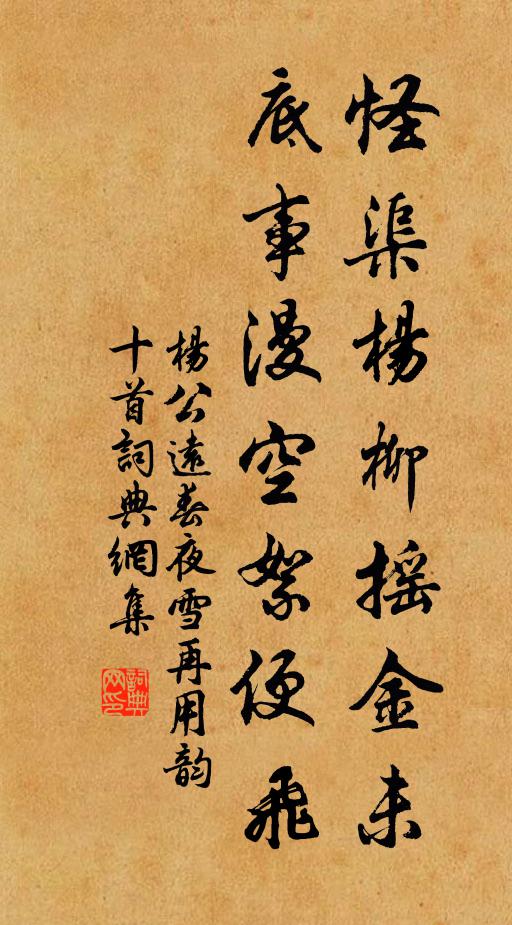 怪渠楊柳摇金未
底事漫空絮便飛
楊公遠春夜雪再用韵
十首詞典網集
詞典网印